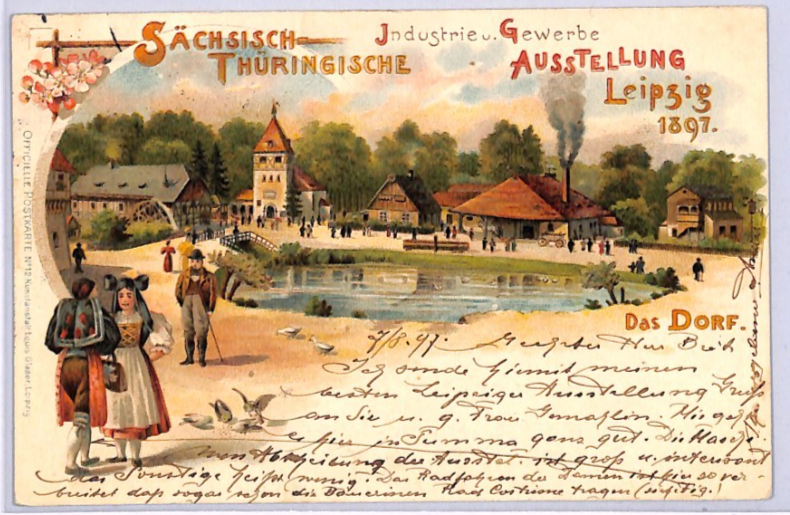 SÄCHSISCH-
THÜRINGISCHE
Industrie u. Gewerbe
AUSSTELLUNG
Leipzig
1897.
OFFICIELLE POSTKARTE No 12 Kunstanstalt Louis Glaser, Leipzig
DAS DORF.
7/8. 97. Geehrter Herr
Ich sende hiermit meinen
besten Leipziger Ausstellung Gruß
an Sie u. g. Frau Gemahlin. Mir
es hier in Summa ganz gut. Die
Abtheilung der Ausstel. ist groß u. interessant
das Sonstige heißt wenig. Das Radfahren der Damen ist hier so ver-
breitet daß sogar schon die Bäuerinen Rad Costüme tragen